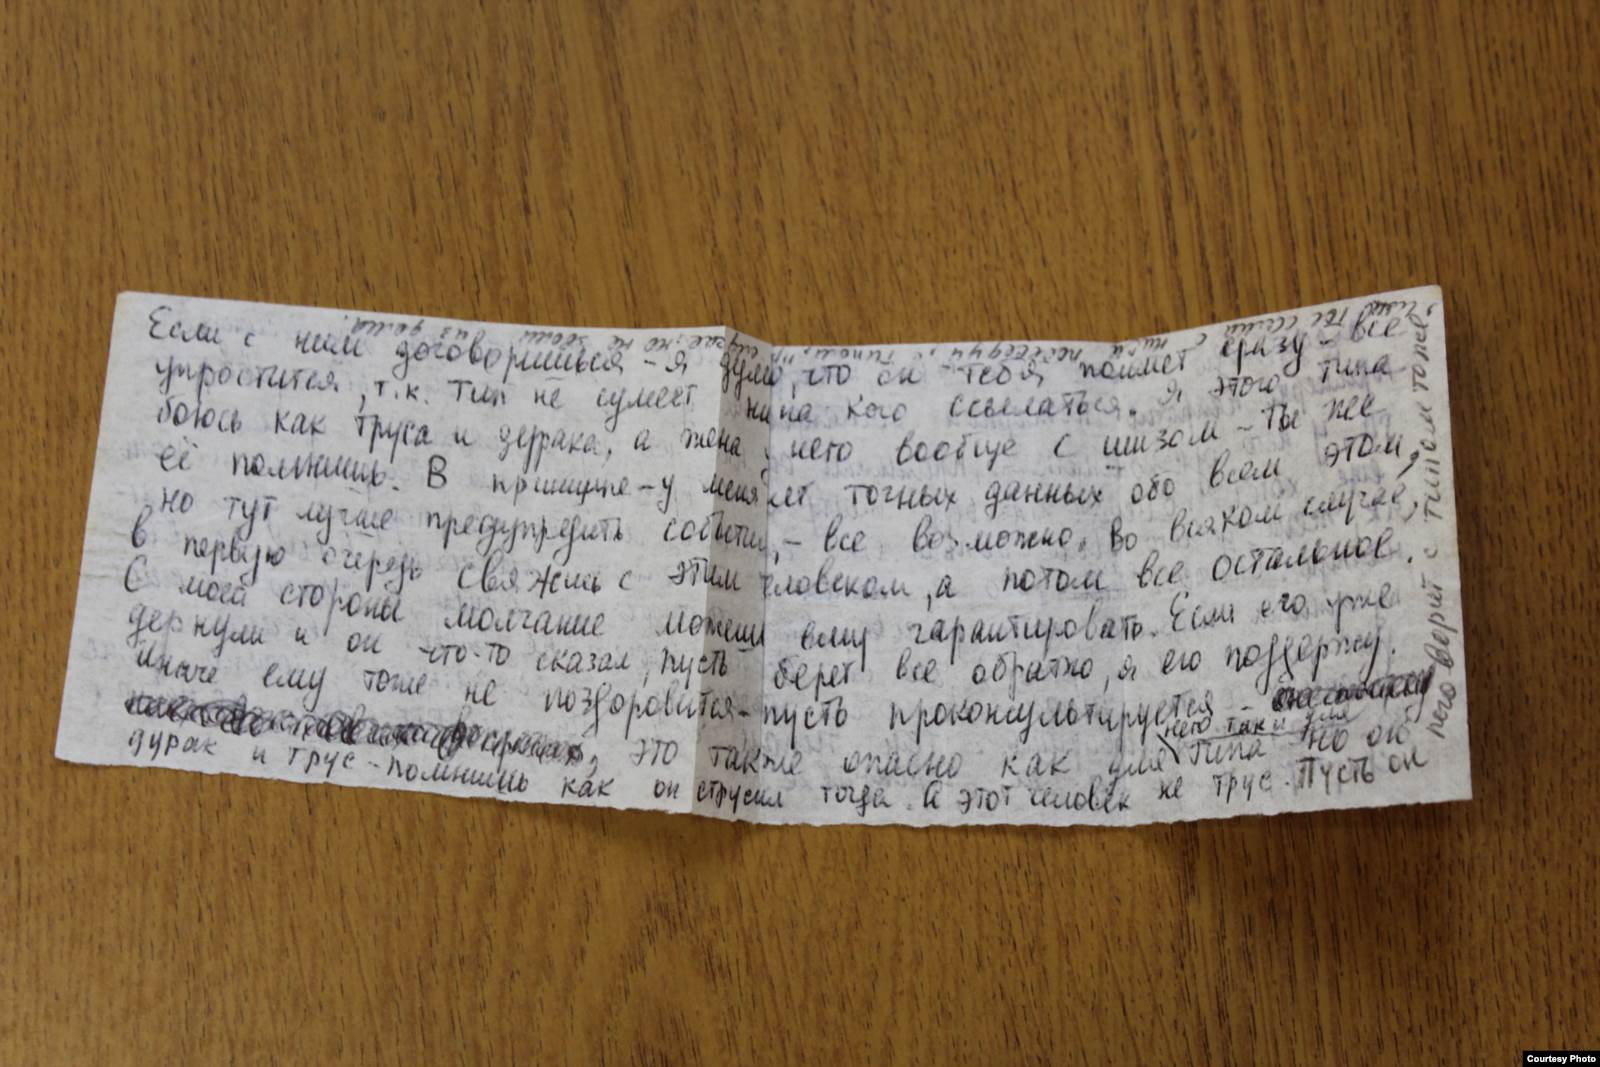 Если с ним договоришься - я думаю, что он тебя поймет сразу - все
упростится, т.к. Тип не сумеет ни на кого ссылаться. Я этого типа
боюсь как труса и дурака, а жена у него вообще с шизом - ты же
её помнишь. В принципе - у меня нет точных данных обо всем этом,
но тут лучше предупредить события, - все возможно. Во всяком случае,
в первую очередь свяжись с этим человеком, а потом все остальное.
С моей стороны молчание можешь ему гарантировать. Если его уже
дернули и он что-то сказал, пусть берет все обратно, я его поддержу.
Иначе ему тоже не поздоровится - пусть проконсультируется -
это также опасно как для него так и для Типа но он
дурак и трус - помнишь как он струсил тогда. А этот человек не трус. Пусть он
него. Верит с типом тоже
с ними побеседуй, с типом,
случае, но не звони из дома.